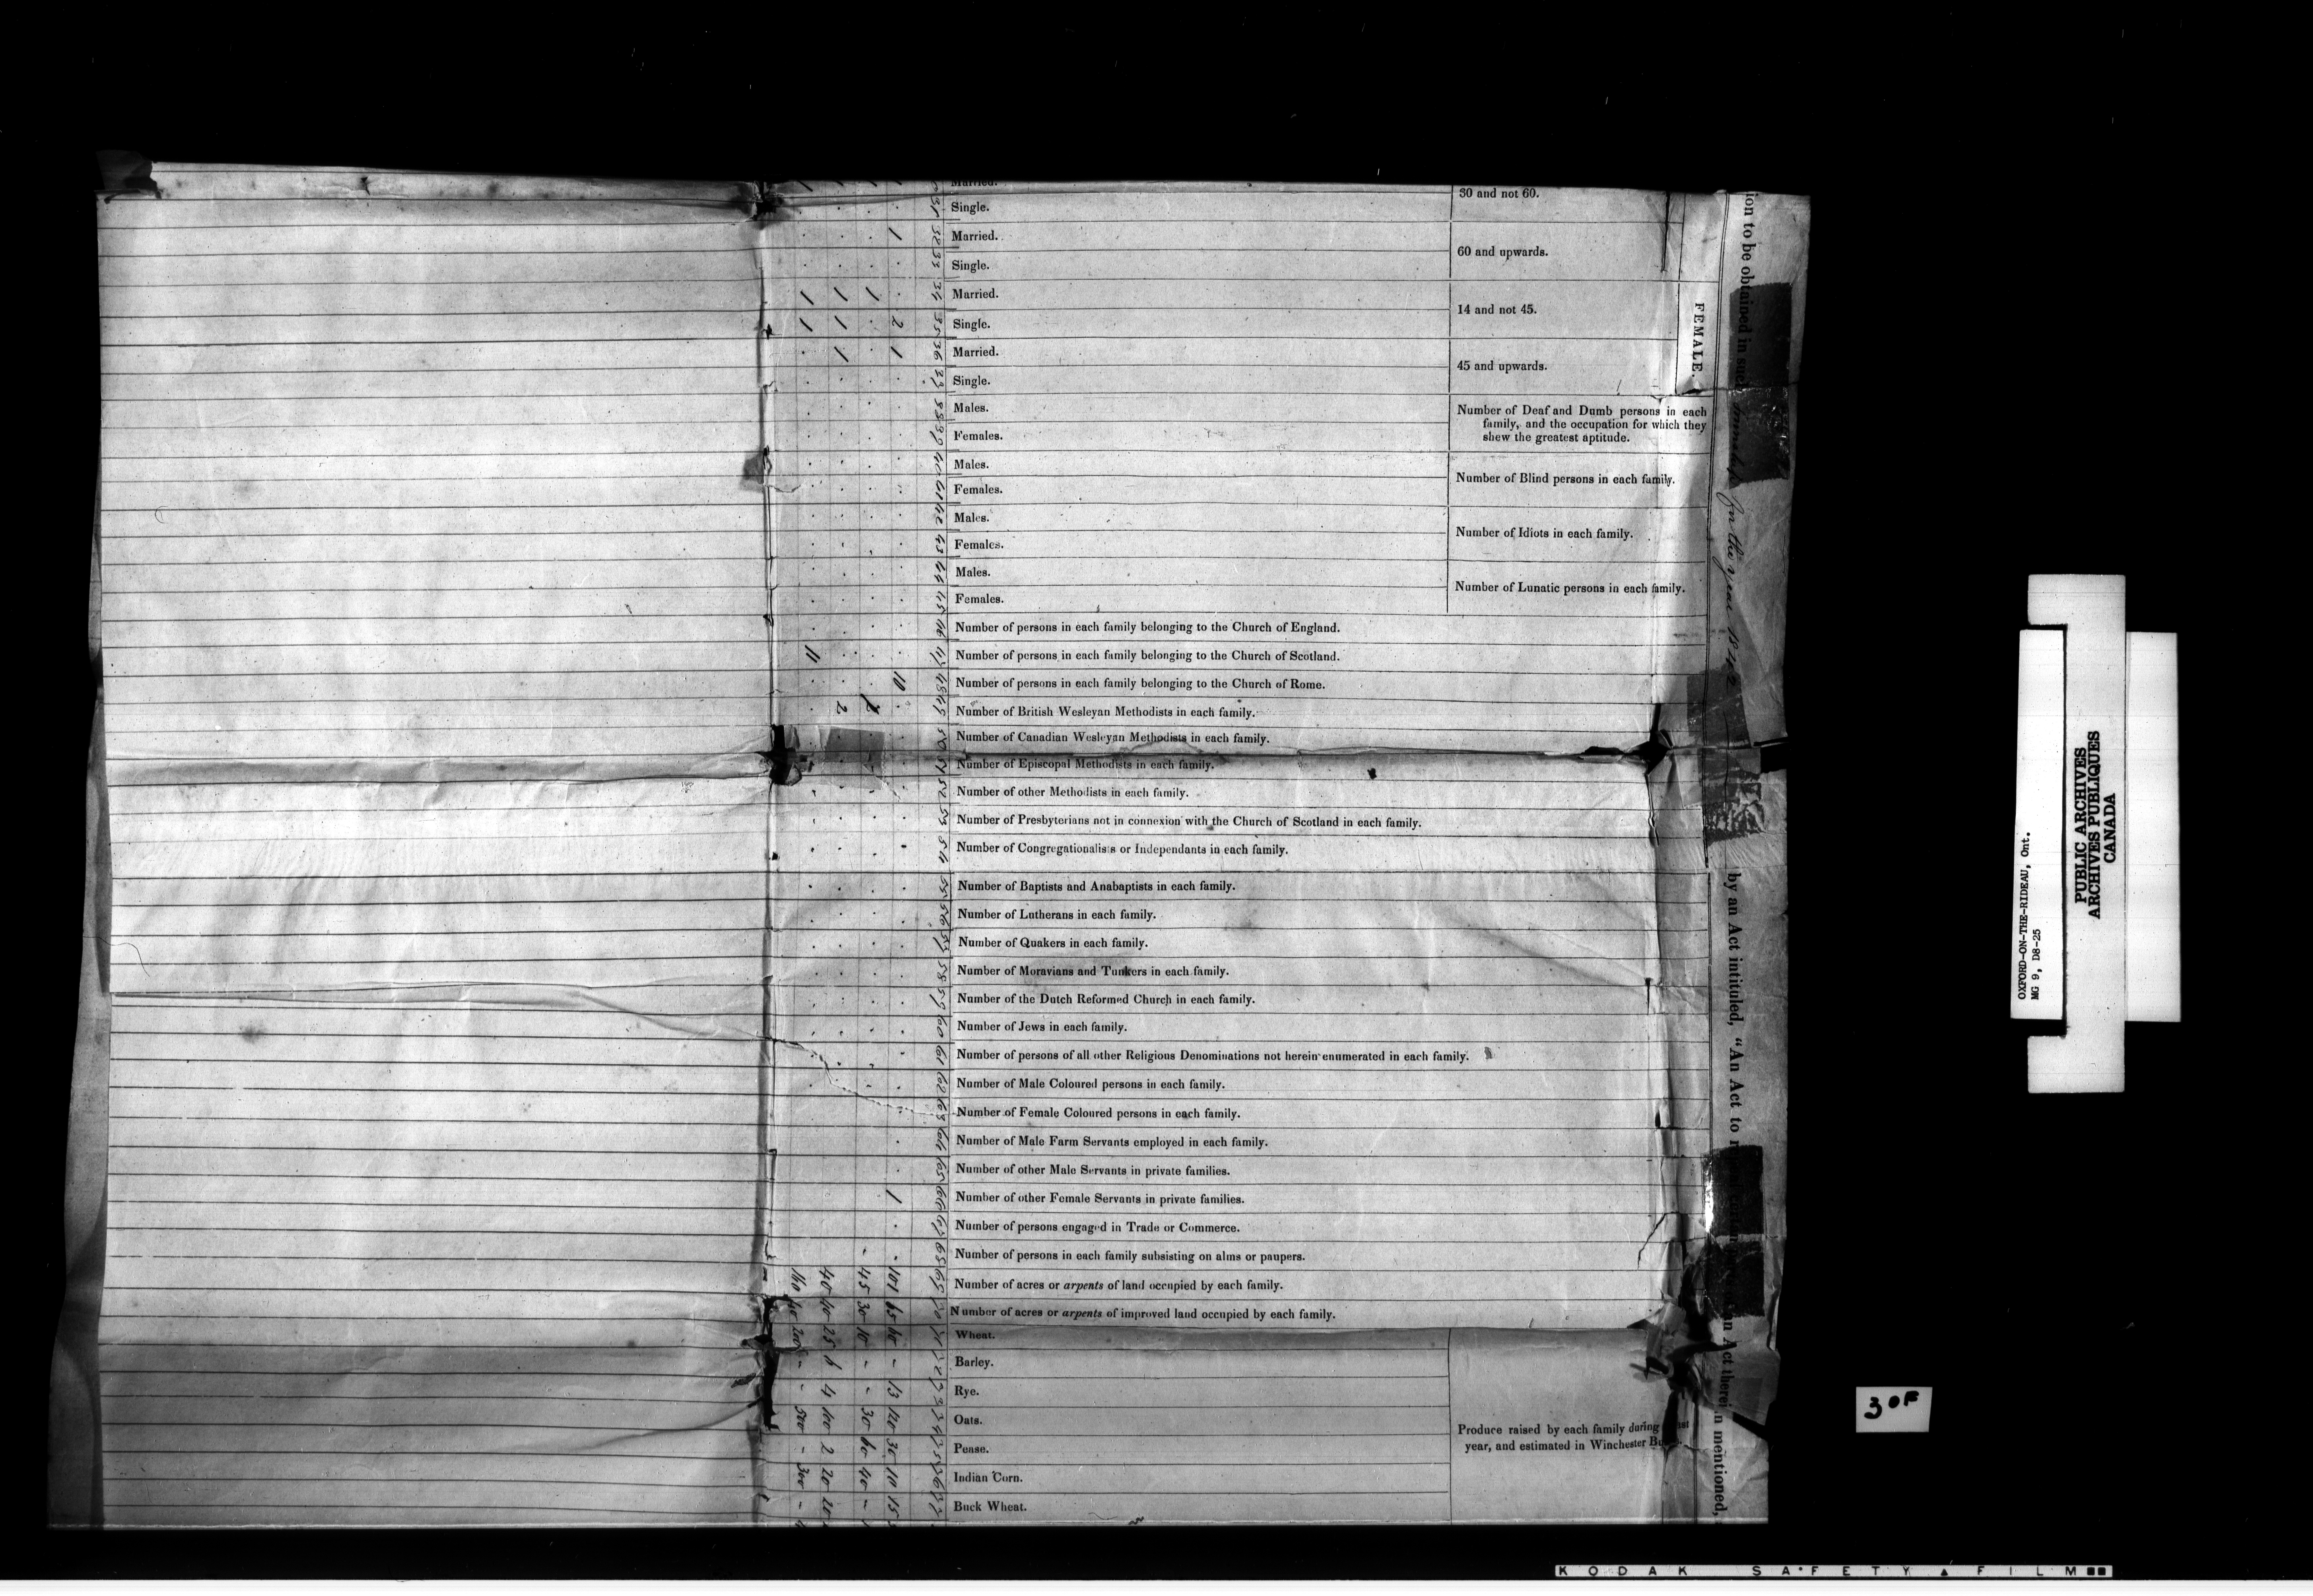 ion to be obtained in such
for the year 1842
by an Act intituled, "An Act to
an Act therein mentioned,
FEMALE.
Married.
30 and not 60.
31 Single.
32 Married. 1
60 and upwards.
33 Single.
34 Married. 1 1 1
14 and not 45.
35 Single. 2 1 1
36 Married. 1 1
45 and upwards.
37 Single.
38 Males.
Number of Deaf and Dumb persons in each
family, and the occupation for which they
shew the greatest aptitude.
39 Females.
40 Males.
Number of Blind persons in each family.
41 Females.
42 Males.
Number of Idiots in each family.
43 Females.
44 Males.
Number of Lunatic persons in each family.
45 Females.
46 Number of persons in each family belonging to the Church of England.
47 Number of persons in each family belonging to the Church of Scotland. 11
48 Number of persons in each family belonging to the Church of Rome. 10
49 Number of British Wesleyan Methodists in each family. 2
50 Number of Canadian Wesleyan Methodists in each family.
51 Number of Episcopal Methodists in each family.
52 Number of other Methodists in each family.
53 Number of Presbyterians not in connexion with the Church of Scotland in each family.
54 Number of Congregationalists or Independants in each family.
55 Number of Baptists and Anabaptists in each family.
56 Number of Lutherans in each family.
57 Number of Quakers in each family.
58 Number of Moravians and Tunkers in each family.
59 Number of the Dutch Reformed Church in each family.
60 Number of Jews in each family.
61 Number of persons of all other Religious Denominations not herein enumerated in each family.
62 Number of Male Coloured persons in each family.
63 Number of Female Coloured persons in each family.
64 Number of Male Farm Servants employed in each family.
65 Number of other Male Servants in private families.
66 Number of other Female Servants in private families. 1
67 Number of persons engaged in Trade or Commerce.
68 Number of persons in each family subsisting on alms or paupers.
69 Number of acres or arpents of land occupied by each family. 101 45 40
70 Number of acres or arpents of improved land occupied by each family. 65 30 40
71 Wheat. 10 25 200
72 Barley. - - 6 -
73 Rye. 13 - 4 -
74 Oats. 120 30 100 500
Produce raised by each family during
year, and estimated in Winchester
75 Pease. 30 60 2 -
76 Indian Corn. 10 40 20 300
77 Buck Wheat. 15 - 20 -
OXFORD-ON-THE-RIDEAU, Ont.
MG 9, D8-25
PUBLIC ARCHIVES
ARCHIVES PUBLIQUES
CANADA
30F
KODAK SAFETY FILM